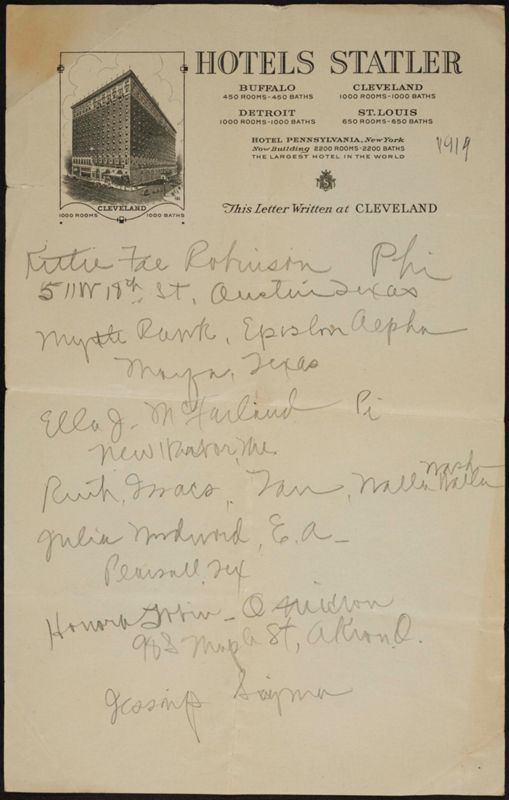 HOTELS STATLER
BUFFALO
450 ROOMS-450 BATHS
CLEVELAND
1000 ROOMS-1000 BATHS
DETROIT
1000 ROOMS-1000 BATHS
ST. LOUIS
650 ROOMS-650 BATHS
HOTEL PENNSYLVANIA, New York
Now Building 2200 ROOMS-2200 BATHS
THE LARGEST HOTEL IN THE WORLD
1919
CLEVELAND
1000 ROOMS 1000 BATHS
This Letter Written at CLEVELAND
Kittie Fae Robinson Phi
511 W 18th St, Austin Texas
Myrtle Epsilon Alpha
Texas
Ella J. McFarland Pi
New
Ruth Isaacs, Tau, Walla Walla
Wash
Julia E. A-
Pearsall, Tex
Honora Tobin - Omicron
Maple St, Akron, O.